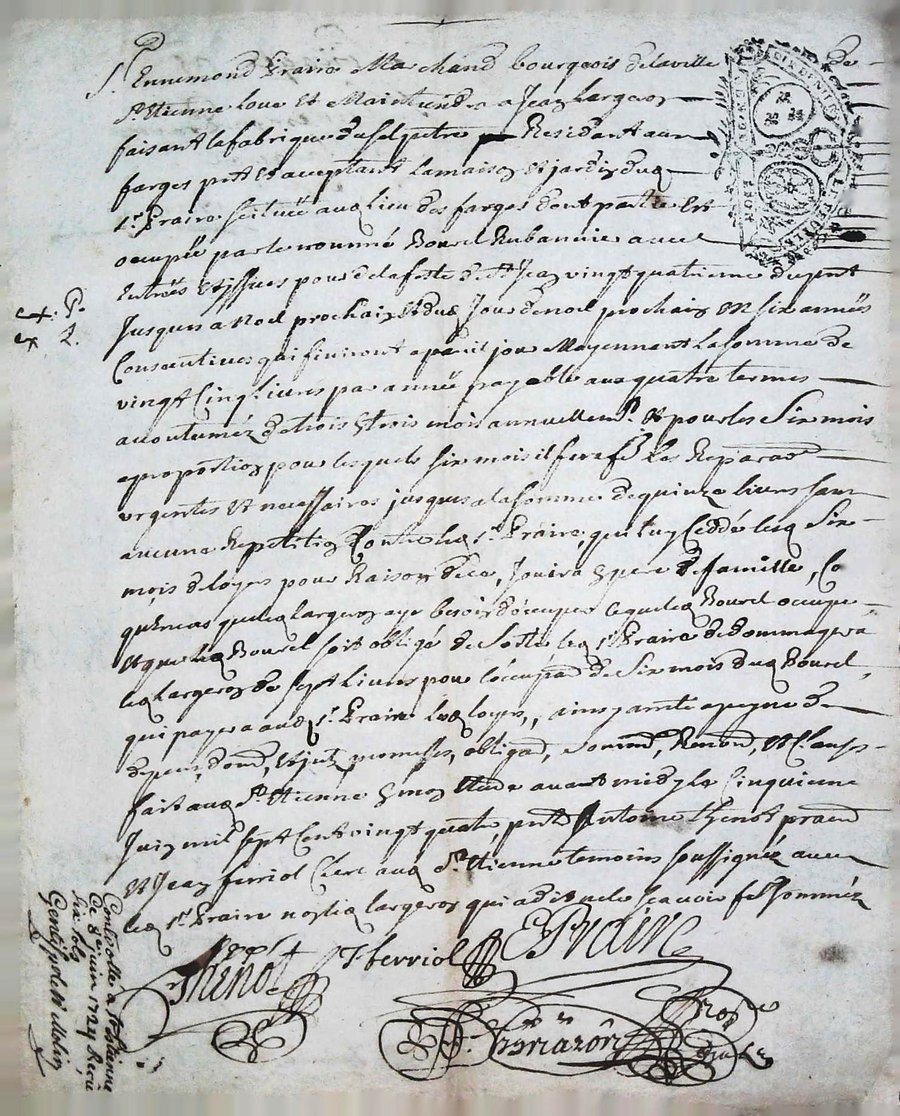 Sr. Ennemond Praire Marchand bourgeois delaville De
St. Etienne Loue Et Maintiendra a Jean Largeron
faisant lafabrique du salpetre Residant aux
farges prnt Et acceptant Lamaison Et jardin dud
Sr. Praire scituée aud Lieu des farges dont partie Est
occupée par le nommé Bourel Rubannier avec
Entrées Et yssues pour de lafeste de St Jean vingt quatrieme du prnt
Jusques a noel prochain Et dud Jour de noel prochain En six années
Consecutives qui finiront apareil jour Moyennant La somme de
vingt Cinq Livres par année payable aux quatre termes
accoutuméz de trois En trois mois annuellemt. Et pour les Six mois
a proportion pour lesquels six mois il fera les Reparaons
urgentes Et necessaires jusques a la somme de quinze livres sans
aucune Repetition Contre led Sr. Praire, qui luy Cedde lesd Six
mois de loyer pour Raison de ce, Jouira En pere de famille, Et
qu'En cas que led Largeron aye besoin d'occuper ce que led Bourel occupe
Et que led Bourel soit obligé de sortir led Sr. Praire dedommagera
led Largeron de sept Livres pour l'occupaon de Six mois dud Bourel
qui payera aud Sr. Praire Led loyer, ainsy arreté a peyne de
depens, dom, Et jnts, promesses, obligaon, soumon, Renon, Et Clauses
fait aud St. Etienne En mon Etude avant midy Le Cinquieme
Juin mil sept Cent vingt quatre, pnts Antoine Thenot praen
Et Jean ferriol Clerc aud St. Etienne temoins soussignéz avec
led Sr. Praire non led Largeron qui a dit ne le scavoir fe Sommez
Thenot J ferriol E Praire
Nore
Controllé a St Etienne
Ce 8e juin 1724 Receu
Six sols